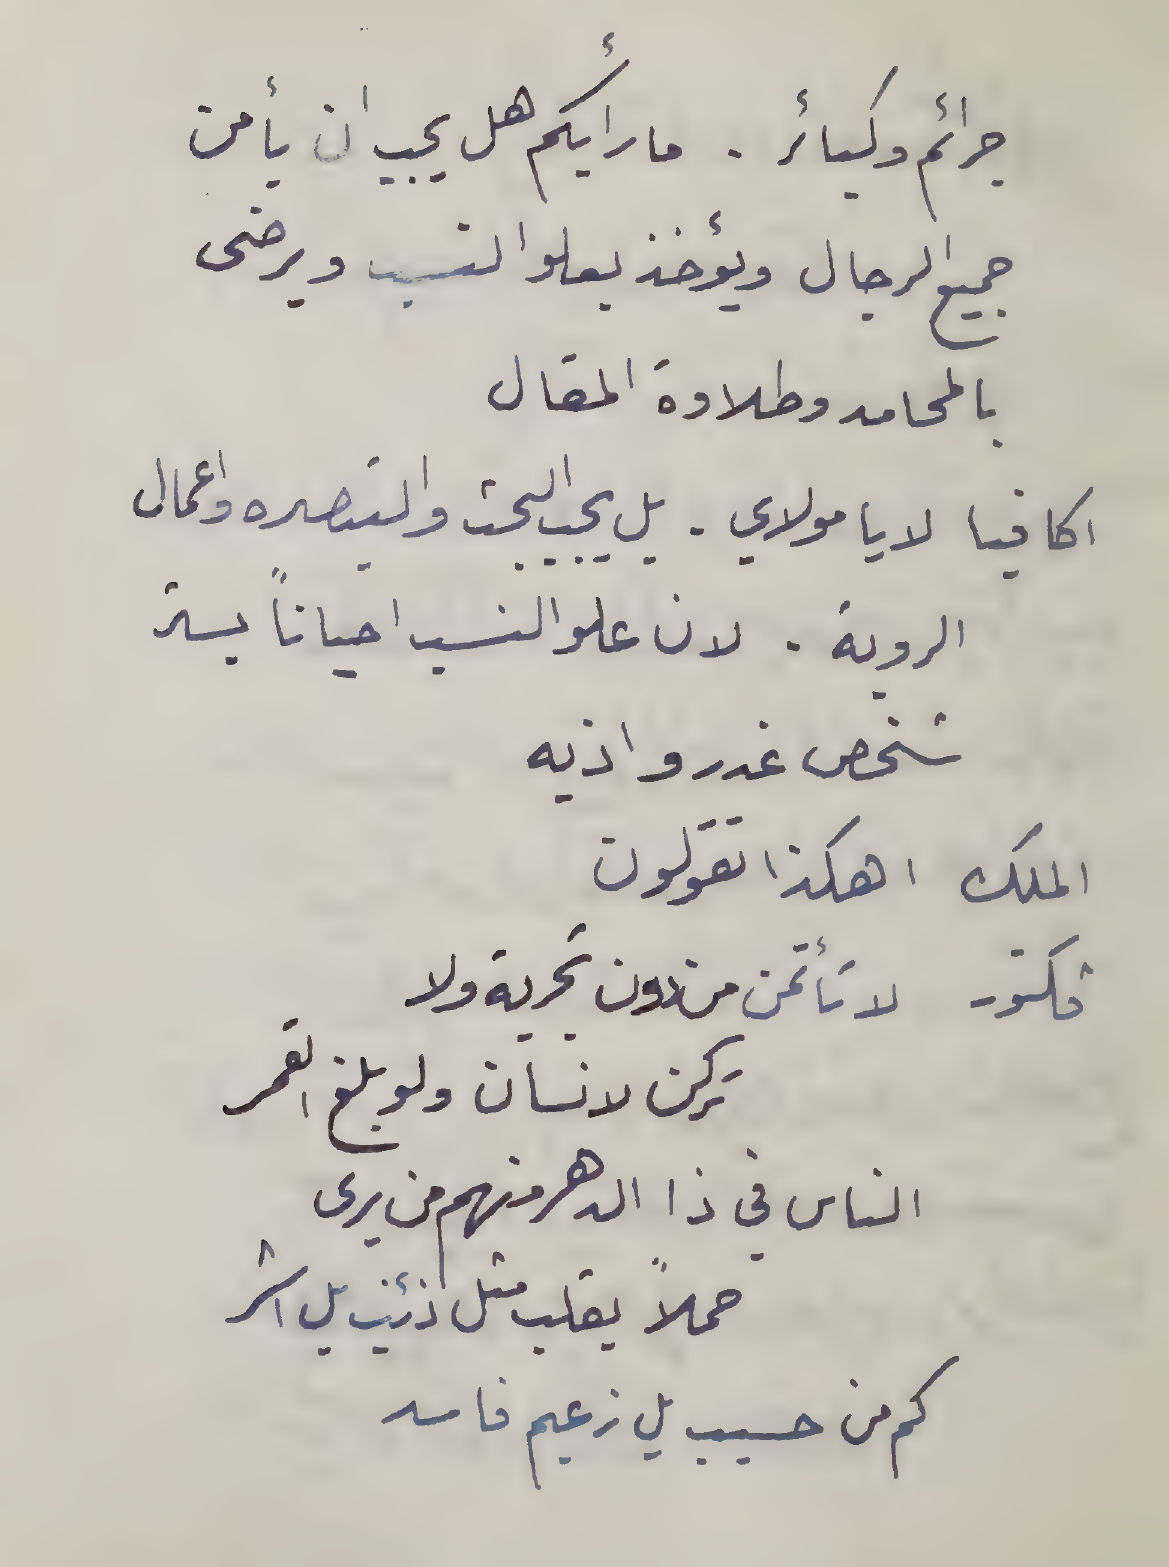 جرائم وكبائر . ما رأيكم هل يجب ان يأمن
جميع الرجال ويؤخذ بعلو النسب ويرضى
بالمحامد وطلاوة المقال
اكافيا لا يا مولاي . بل يجب البحث والتبصره واعمال
الروية . لان علو النسب احياناً يستر
شخص غدر واذيه
الملك اهكذا تقولون
فكتور لا تأتمن من دون تجربة ولا
تركن لانسان ولو بلغ القمر
الناس في ذا الدهر منهم من يرى
حملاً بقلب مثل ذئب بل اشر
كم من حسيب بل زعيم فاسد